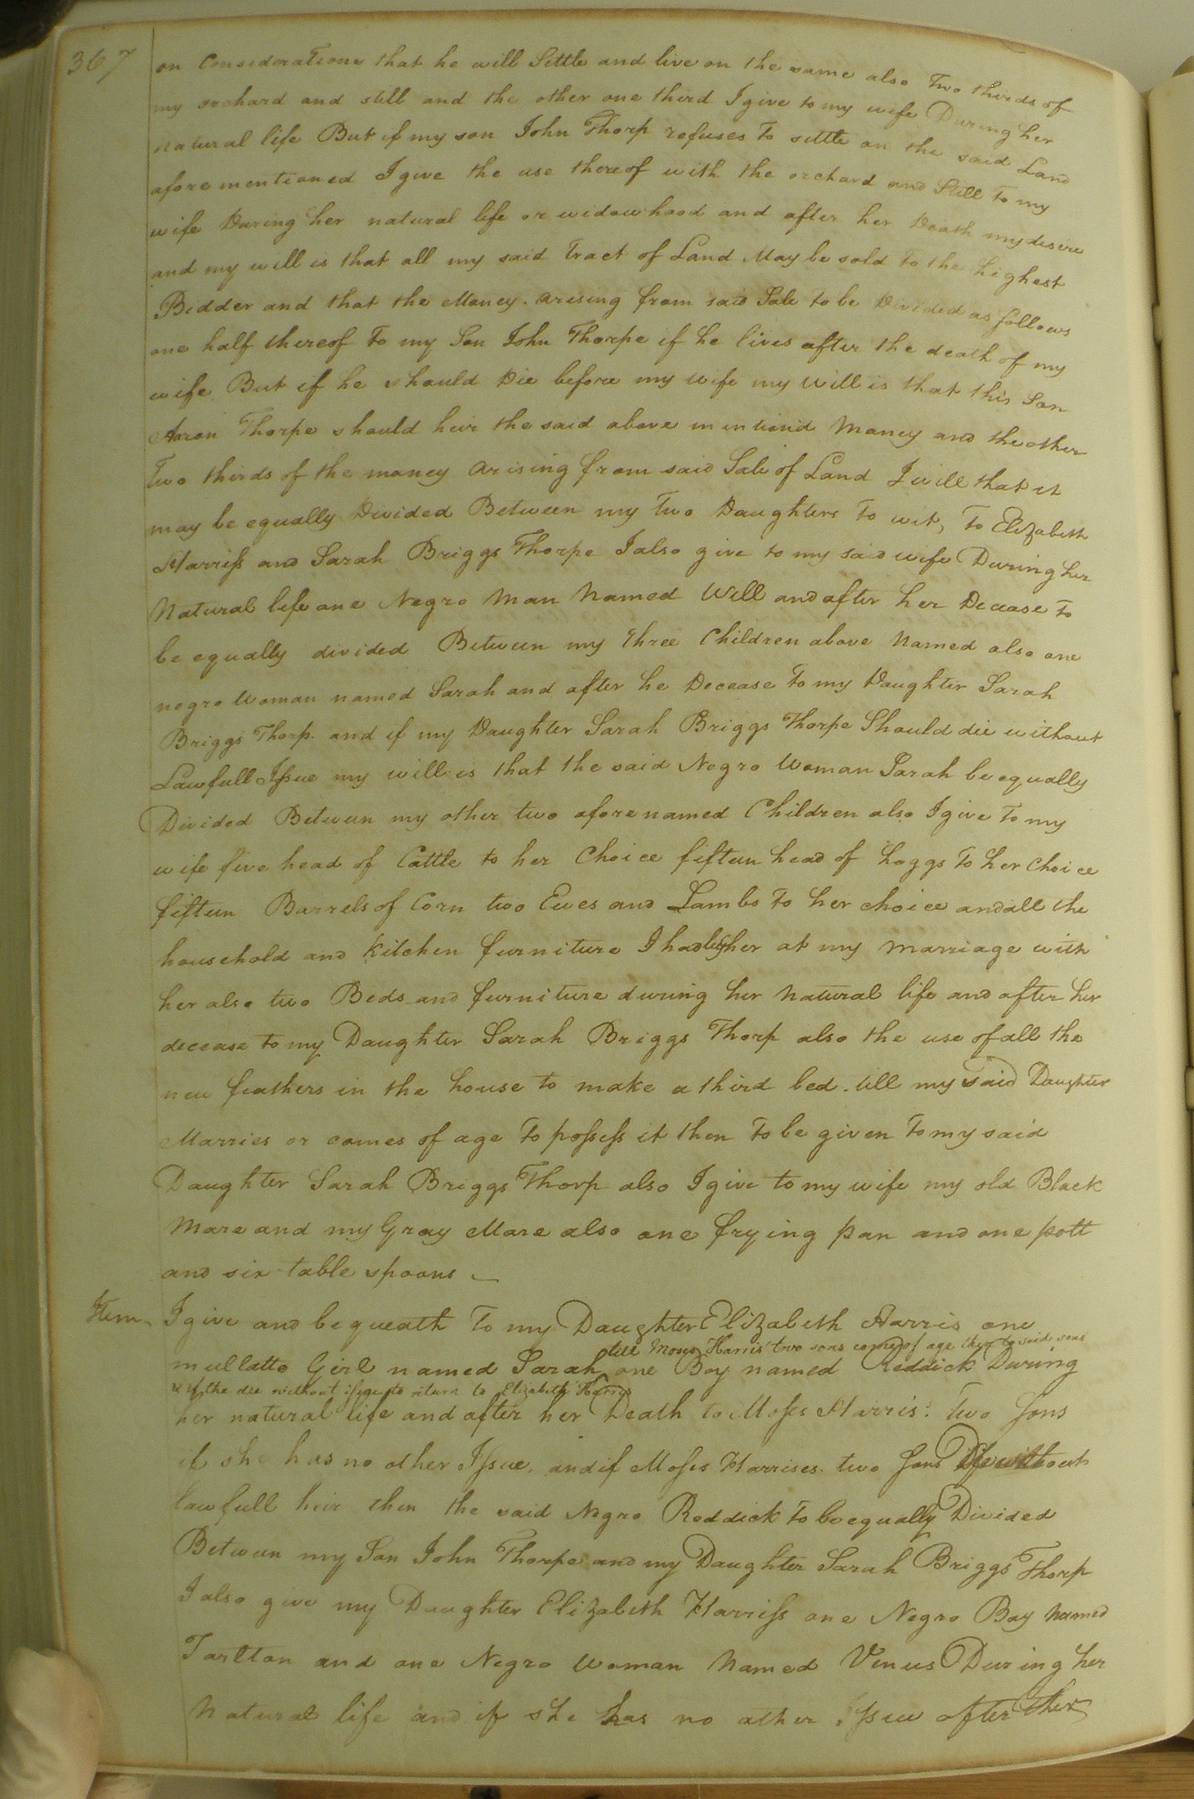 367
on Considerations that he will Settle and live on the same also Two thirds of
my orchard and still and the other one third I give to my wife During her
natural life But if my son John Thorp refuses To settle on the said Land
afore mentioned I give the use thereof with the orchard and Still To my
wife During her natural life or widowhood and after her Death my desire
and my will is that all my said Tract of Land May be sold To the highest
Bidder and that the Money arising from said Sale to be Divided as follows
one half thereof To my Son John Thorpe if he lives after the death of my
wife But if he should Die before my wife my Will is that this Son
Aaron Thorpe should heir the said above Money and the other
Two thirds of the money arising from said Sale of Land I will that it
may be equally Divided Between my Two Daughters To wit, To Elizabeth
Harriss and Sarah Briggs Thorpe I also give to my said wife During her
Natural life one Negro Man Named Will and after her Decease To
be equally divided Between my three Children above Named also one
negro Woman named Sarah and after he Decease To my Daughter Sarah
Briggs Thorp. and if my Daughter Sarah Briggs Thorpe Should die without
Lawfull Issue my will is that the said Negro Woman Sarah be equally
Divided Between my other two afore named Children also I give To my
wife five head of Cattle to her Choice fifteen head of hoggs To her Choice
fifteen Barrels of Corn two Ewes and Lambs To her choice and all the
household and Kitchen furniture I had by her at my Marriage with
her also two Beds and furniture during her Natural life and after her
decease to my Daughter Sarah Briggs Thorp also the use of all the
new feathers in the house to make a third bed till my said Daughter
Marries or comes of age To possess it then To be given To my said
Daughter Sarah Briggs Thorp also I give to my wife my old Black
Mare and my Gray Mare also one frying pan and one pott
and six table spoons
Item. I give and bequeath To my Daughter Elizabeth Harris one
till Moses Harris' two sons comes of age then to said sons
mullatto Girl named Sarah one Boy named Reddick During
& if the die without issue to return to Elizabeth Harris
her natural life and after her Death to Moses Harris' Two Sons
if she has no other Issue. and if Moses Harrises two Sons Die without
lawfull heir then the said Negro Reddick To be equally Divided
Between my Son John Thorpe and my Daughter Sarah Briggs Thorp
I also give my Daughter Elizabeth Harriss one Negro Boy Named
Tarlton and one Negro Woman Named Venus During her
Natural life and if she has no other Issue after her